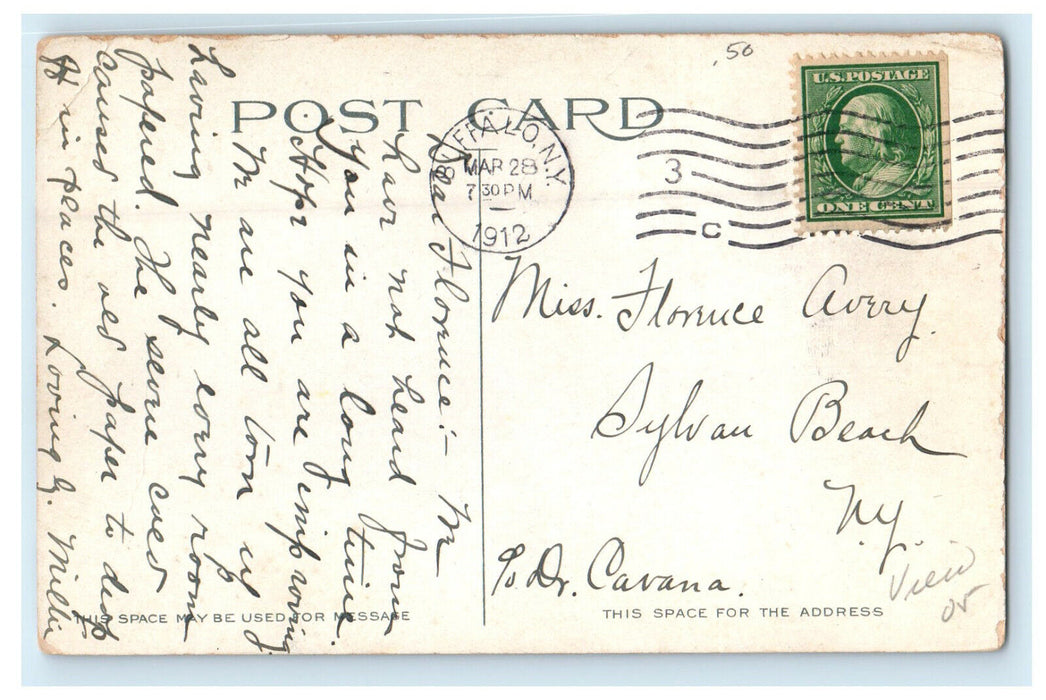 .50
POST CARD
BUFFALO, N.Y.
MAR 28
7 30 PM
1912
3
C
U.S. POSTAGE
ONE CENT
Dear Florence:- We
have not heard from
you in a long time.
Hope you are improving.
We are all torn up
having nearly every room
papered. The severe cold
caused the old paper to drop
off in places. Loving G. Millie
Miss. Florence Avery.
Sylvan Beach
N.Y.
c/o Dr. Cavana.
View
or
THIS SPACE MAY BE USED FOR MESSAGE
THIS SPACE FOR THE ADDRESS